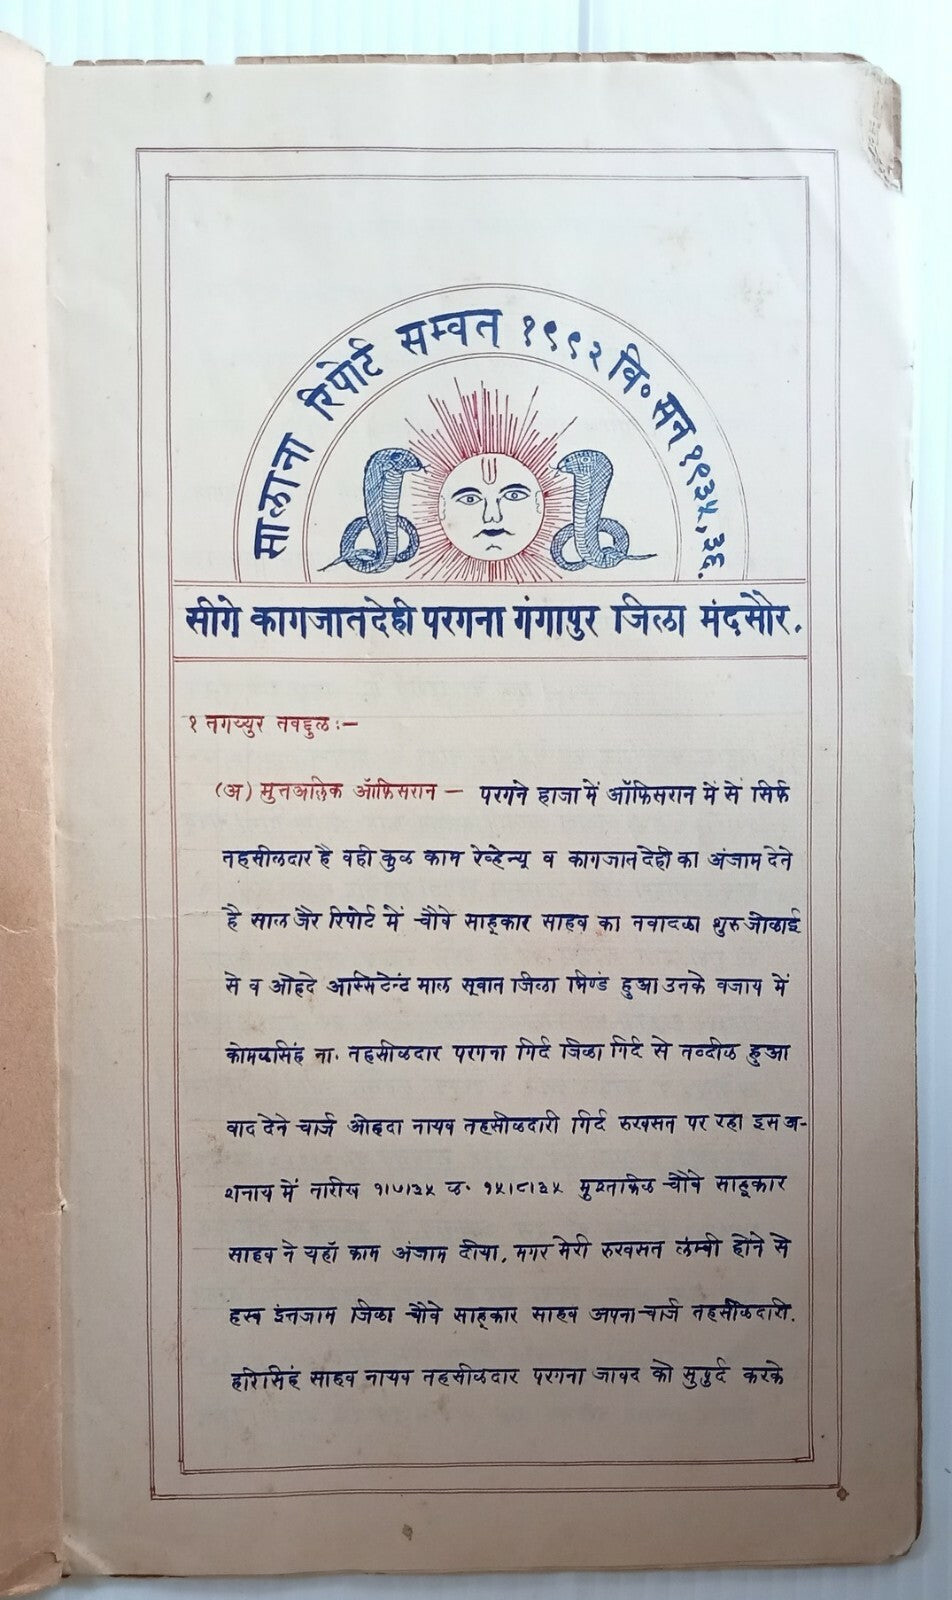 सालाना रिपोर्ट सम्वत १९९२ वि॰ सन १९३५,३६.
सीगे कागजातदेही परगना गंगापुर जिला मंदसौर.
१ तगय्युर तबद्दुल:—
(अ) मुतअलिक ऑफिसरान — परगने हाजा में ऑफिसरान में से सिर्फ
तहसीलदार है वही कुल काम रेव्हेन्यू व कागजातदेही का अंजाम देते
है साल जैर रिपोर्ट में चौबे साहूकार साहब का तबादला शुरु जोलाई
से व ओहदे आस्सिटेन्ट माल सूबात जिला भिण्ड हुआ उनके बजाय में
कोमलसिंह ना. तहसीलदार परगना गिर्द जिला गिर्द से तब्दील हुआ
बाद देने चार्ज ओहदा नायब तहसीलदारी गिर्द रुखसत पर रहा इस अ-
शनाय में तारीख १।७।३५ ल. १५।८।३५ चौबे साहूकार
साहब ने यहाँ काम अंजाम दीया. मगर मेरी रुखसत लम्बी होने से
हस्ब इंतजाम जिला चौबे साहूकार साहब अपना चार्ज तहसीलदारी.
हरिसिंह साहब नायब तहसीलदार परगना जावद को सुपुर्द करके